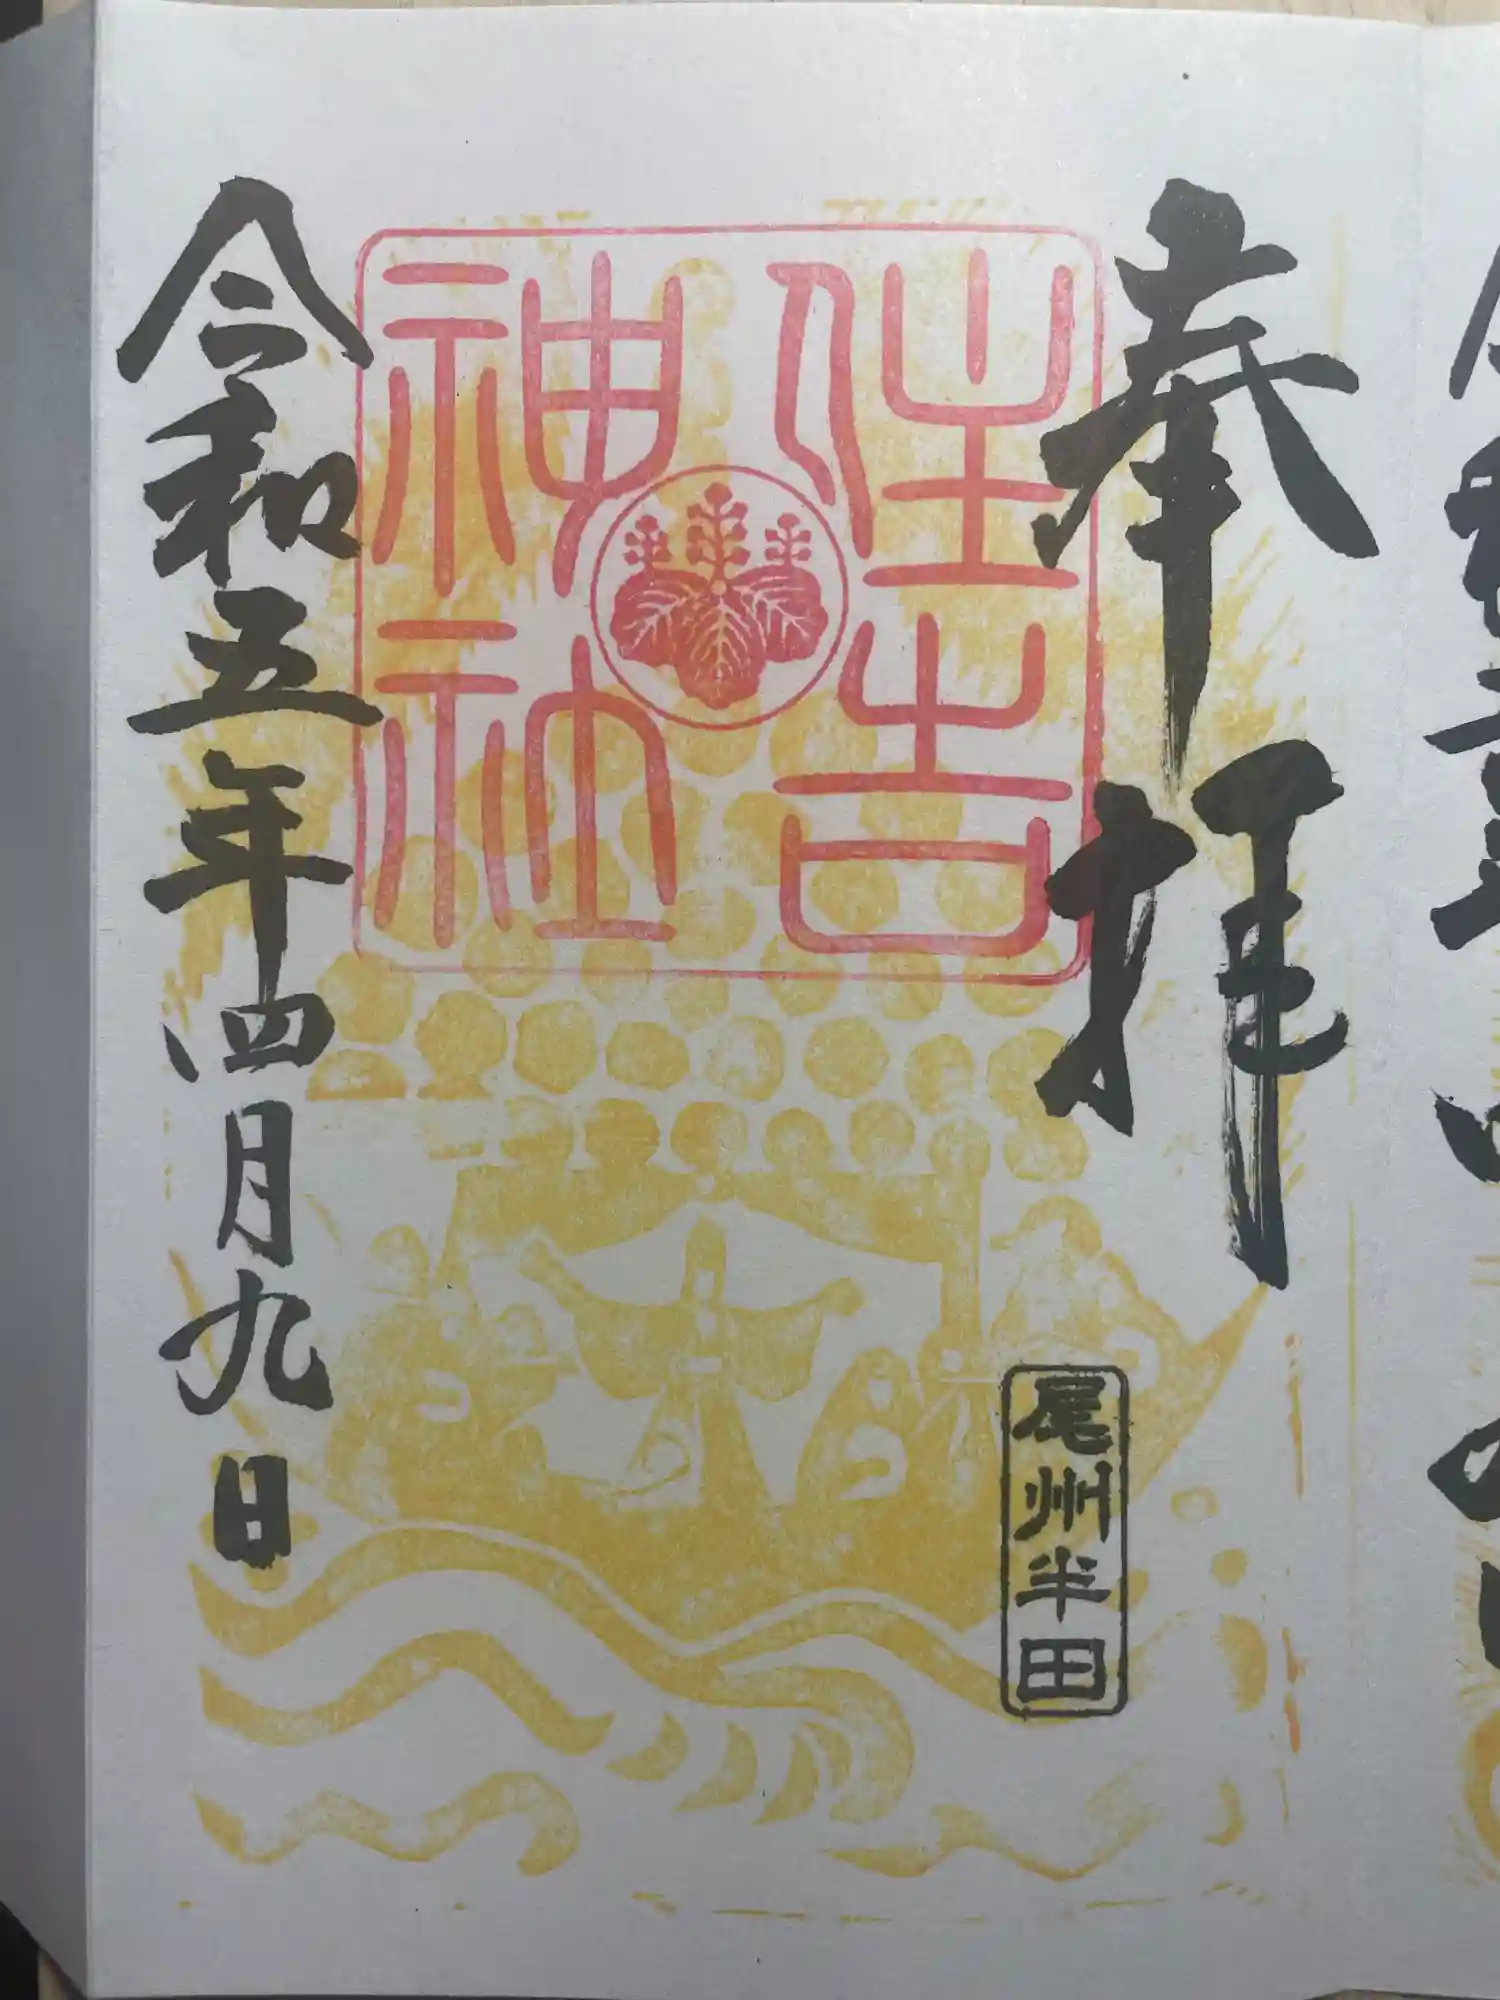 奉拝
尾州半田
住吉
神社
令和五年四月九日